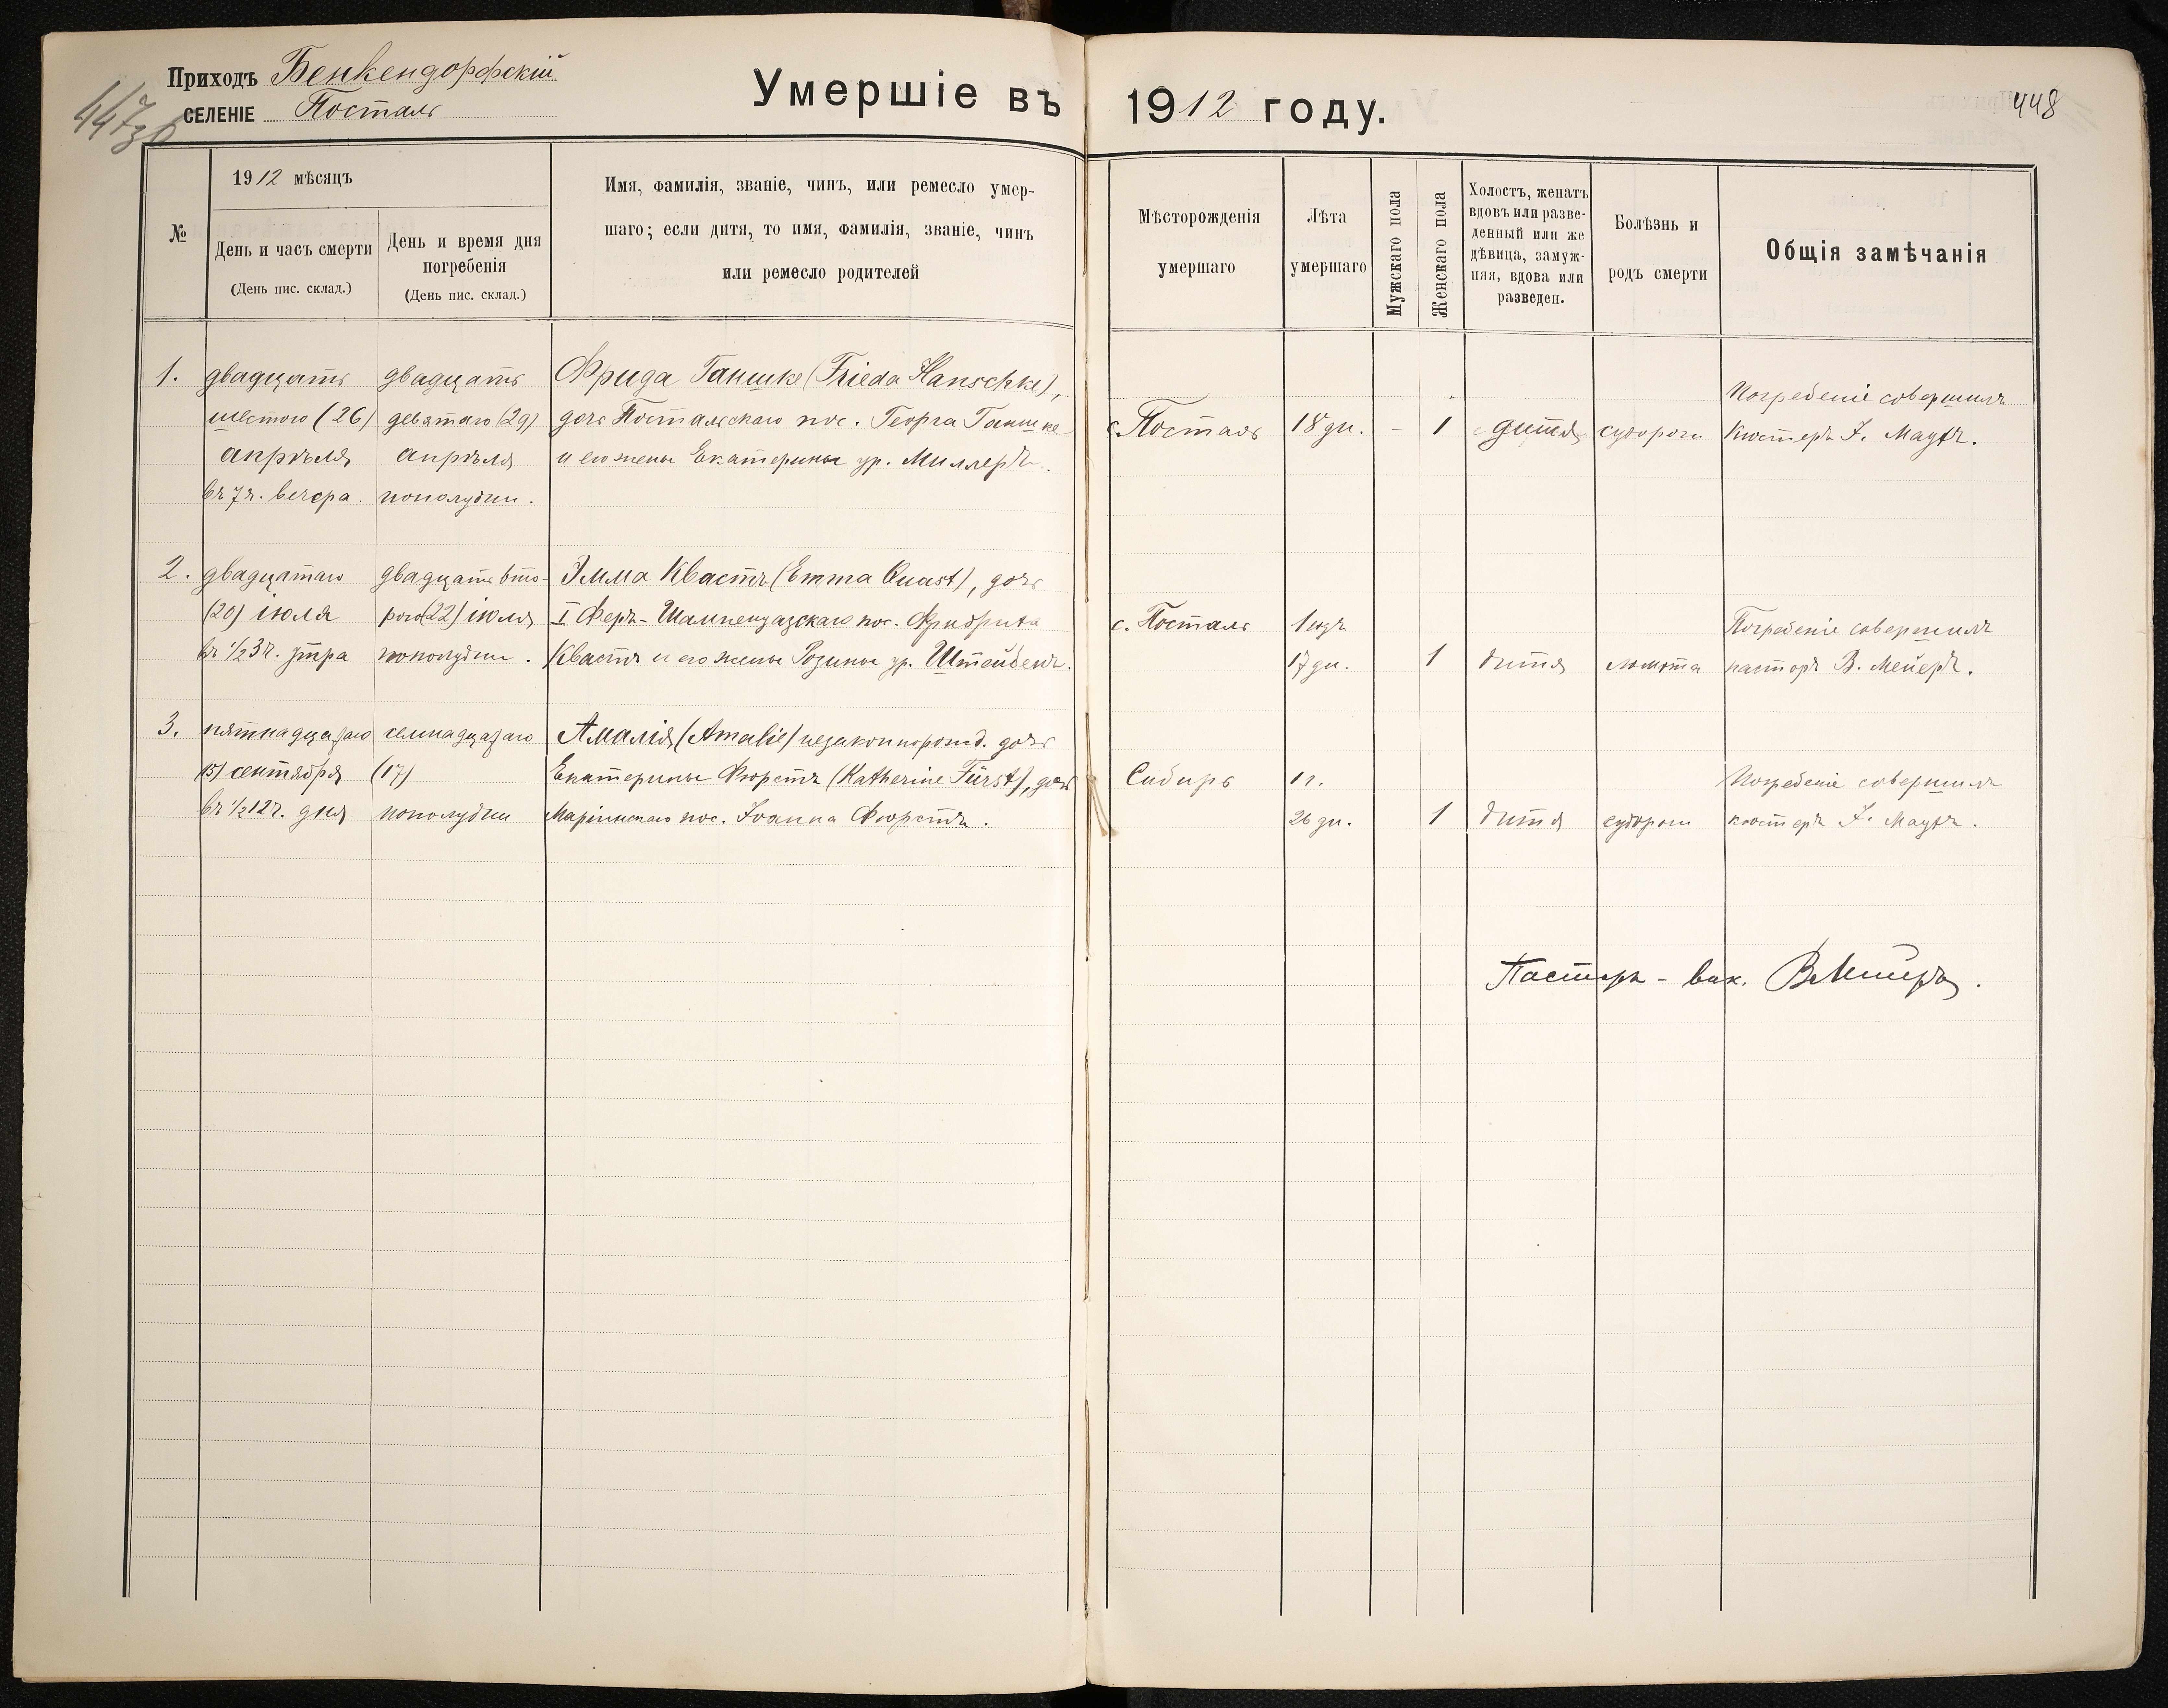 Приходъ Бенкендорфскій
СЕЛЕНІЕ Посталь
Умершіе въ 1912 году.
448
№
1912 мѣсяцъ
День и часъ смерти
(День пис. склад.)
День и время дня
погребенія
(День пис. склад.)
Имя, фамилія, званіе, чинъ, или ремесло умер-
шаго; если дитя, то имя, фамилія, званіе, чинъ
или ремесло родителей
Мѣсторожденія
умершаго
Лѣта
умершаго
Мужскаго пола
Женскаго пола
Холостъ, женатъ
вдовъ или разве-
денный или же
дѣвица, замуж-
няя, вдова или
разведен.
Болѣзнь и
родъ смерти
Общія замѣчанія
1.
двадцать
шестого (26)
апрѣля
въ 7 ч. вечера.
двадцать
девятаго (29)
апрѣля
пополудни.
Фрида Ганшке (Frieda Hanschke),
дочь Постальскаго пос. Георга Ганшке
и его жены Екатерины ур. Миллеръ.
с. Посталь
18 дн.
-
1
дитя
судороги
Погребеніе совершилъ
Кюстеръ Я. Маутъ.
2.
двадцатаго
(20) іюля
въ 1/2 3 ч. утра
двадцать вто-
рого (22) іюля
пополудни.
Эмма Квастъ (Emma Quast), дочь
I Феръ-Шампенуазскаго пос. Фридриха
Квастъ и его жены Розины ур. Штейбенъ.
с. Посталь
1 годъ
17 дн.
1
дитя
ломота
Погребеніе совершилъ
пасторъ В. Мейеръ.
3.
пятнадцатаго
(15) сентября
въ 1/2 12 ч. дня
семнадцатаго
(17)
пополудни
Амалія (Amalie) незаконнорожд. дочь
Екатерины Фюрстъ (Katherine Fürst), дочь
Маріинскаго пос. Іоанна Фюрстъ.
Сибирь
1 г.
26 дн.
1
дитя
судороги
Погребеніе совершилъ
кюстеръ Я. Маутъ.
Пасторъ - вик. В. Мейеръ.